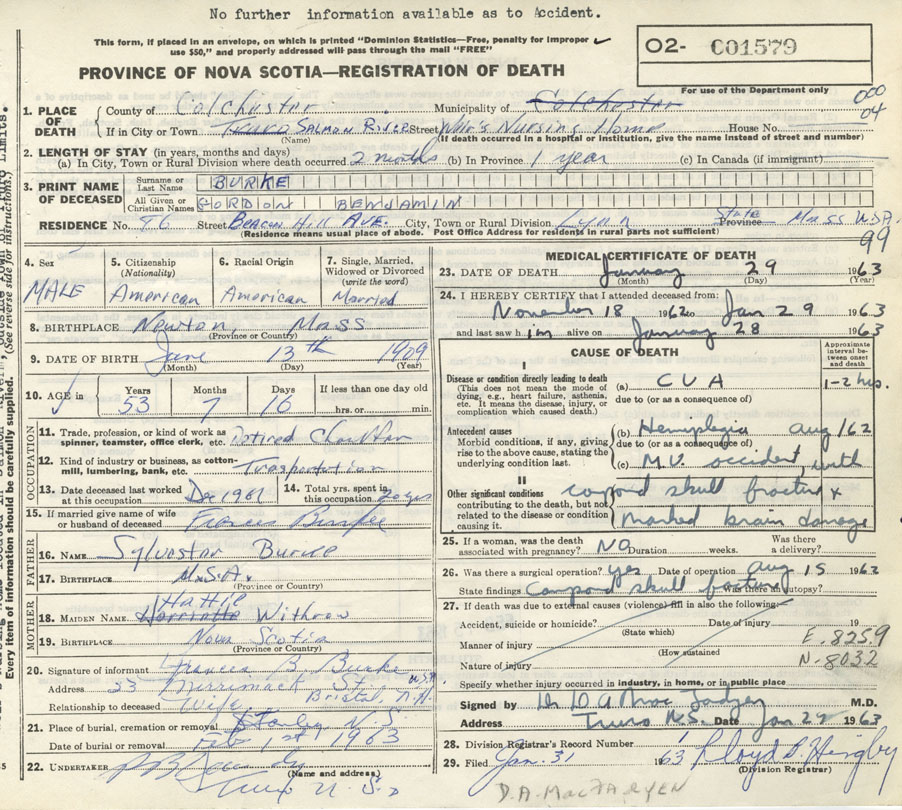 No further information available as to Accident.
This form, if placed in an envelope, on which is printed "Dominion Statistics—Free, penalty for improper
use $50," and properly addressed will pass through the mail "FREE"
02- C01579
For use of the Department only
PROVINCE OF NOVA SCOTIA—REGISTRATION OF DEATH
000
04
1. PLACE OF DEATH
County of Colchester Municipality of Colchester
If in City or Town Truro Salmon River Street Nursing Home House No.
(Name) (If death occurred in a hospital or institution, give the name instead of street and number)
2. LENGTH OF STAY (in years, months and days)
(a) In City, Town or Rural Division where death occurred 2 months (b) In Province 1 year (c) In Canada (if immigrant)
3. PRINT NAME OF DECEASED
Surname or Last Name BURKE
All Given or Christian Names GORDON BENJAMIN
RESIDENCE No. 86 Street Beacon Hill AVE. City, Town or Rural Division Lynn State Province Mass USA.
(Residence means usual place of abode. Post Office Address for residents in rural parts not sufficient)
99
4. Sex MALE
5. Citizenship (Nationality) American
6. Racial Origin American
7. Single, Married, Widowed or Divorced (write the word) Married
8. BIRTHPLACE Newton, Mass
(Province or Country)
9. DATE OF BIRTH June 13th 1909
(Month) (Day) (Year)
10. AGE in Years 53 Months 7 Days 16 If less than one day old hrs. or min.
OCCUPATION
11. Trade, profession, or kind of work as spinner, teamster, office clerk, etc. retired Chauffer
12. Kind of industry or business, as cotton-mill, lumbering, bank, etc. Trasportation
13. Date deceased last worked at this occupation Dec 1961
14. Total yrs. spent in this occupation 20 yrs
15. If married give name of wife or husband of deceased Frances
FATHER
16. NAME Sylvester Burke
17. BIRTHPLACE U.S.A.
(Province or Country)
MOTHER
18. MAIDEN NAME Harriette Hattie Withrow
19. BIRTHPLACE Nova Scotia
(Province or Country)
20. Signature of informant Frances B. Burke
Address 33 Merrimack St Bristol N.H. U.S.A.
Relationship to deceased Wife
21. Place of burial, cremation or removal Stanley N S
Date of burial or removal Feb 1st 1963
22. UNDERTAKER
(Name and address)
Truro N.S.
MEDICAL CERTIFICATE OF DEATH
23. DATE OF DEATH January 29 1963
(Month) (Day) (Year)
24. I HEREBY CERTIFY that I attended deceased from:
November 18 1962 to Jan 29 1963
and last saw him alive on January 28 1963
CAUSE OF DEATH
Approximate interval between onset and death
I
Disease or condition directly leading to death
(This does not mean the mode of dying, e.g., heart failure, asthenia, etc. It means the disease, injury, or complication which caused death.)
(a) CVA 1-2 hrs.
due to (or as a consequence of)
Antecedent causes
Morbid conditions, if any, giving rise to the above cause, stating the underlying condition last.
(b) Hemiplegia Aug /62
due to (or as a consequence of)
(c) M.V. accident, with
II
Other significant conditions
contributing to the death, but not related to the disease or condition causing it.
compond skull fracture +
marked brain damage
25. If a woman, was the death associated with pregnancy? NO Duration weeks. Was there a delivery?
26. Was there a surgical operation? yes Date of operation Aug 15 1962
State findings Compond skull fracture Was there an autopsy?
27. If death was due to external causes (violence) fill in also the following:
Accident, suicide or homicide? Date of injury 19
(State which)
Manner of injury E.8259
(How sustained)
Nature of injury N-8032
Specify whether injury occurred in industry, in home, or in public place
Signed by Dr D A M.D.
Address Truro N.S. Date Jan 29 1963
28. Division Registrar's Record Number 1
29. Filed Jan. 31 1963 Lloyd
(Division Registrar)
Every item of information should be carefully supplied. (See reverse side for instructions)